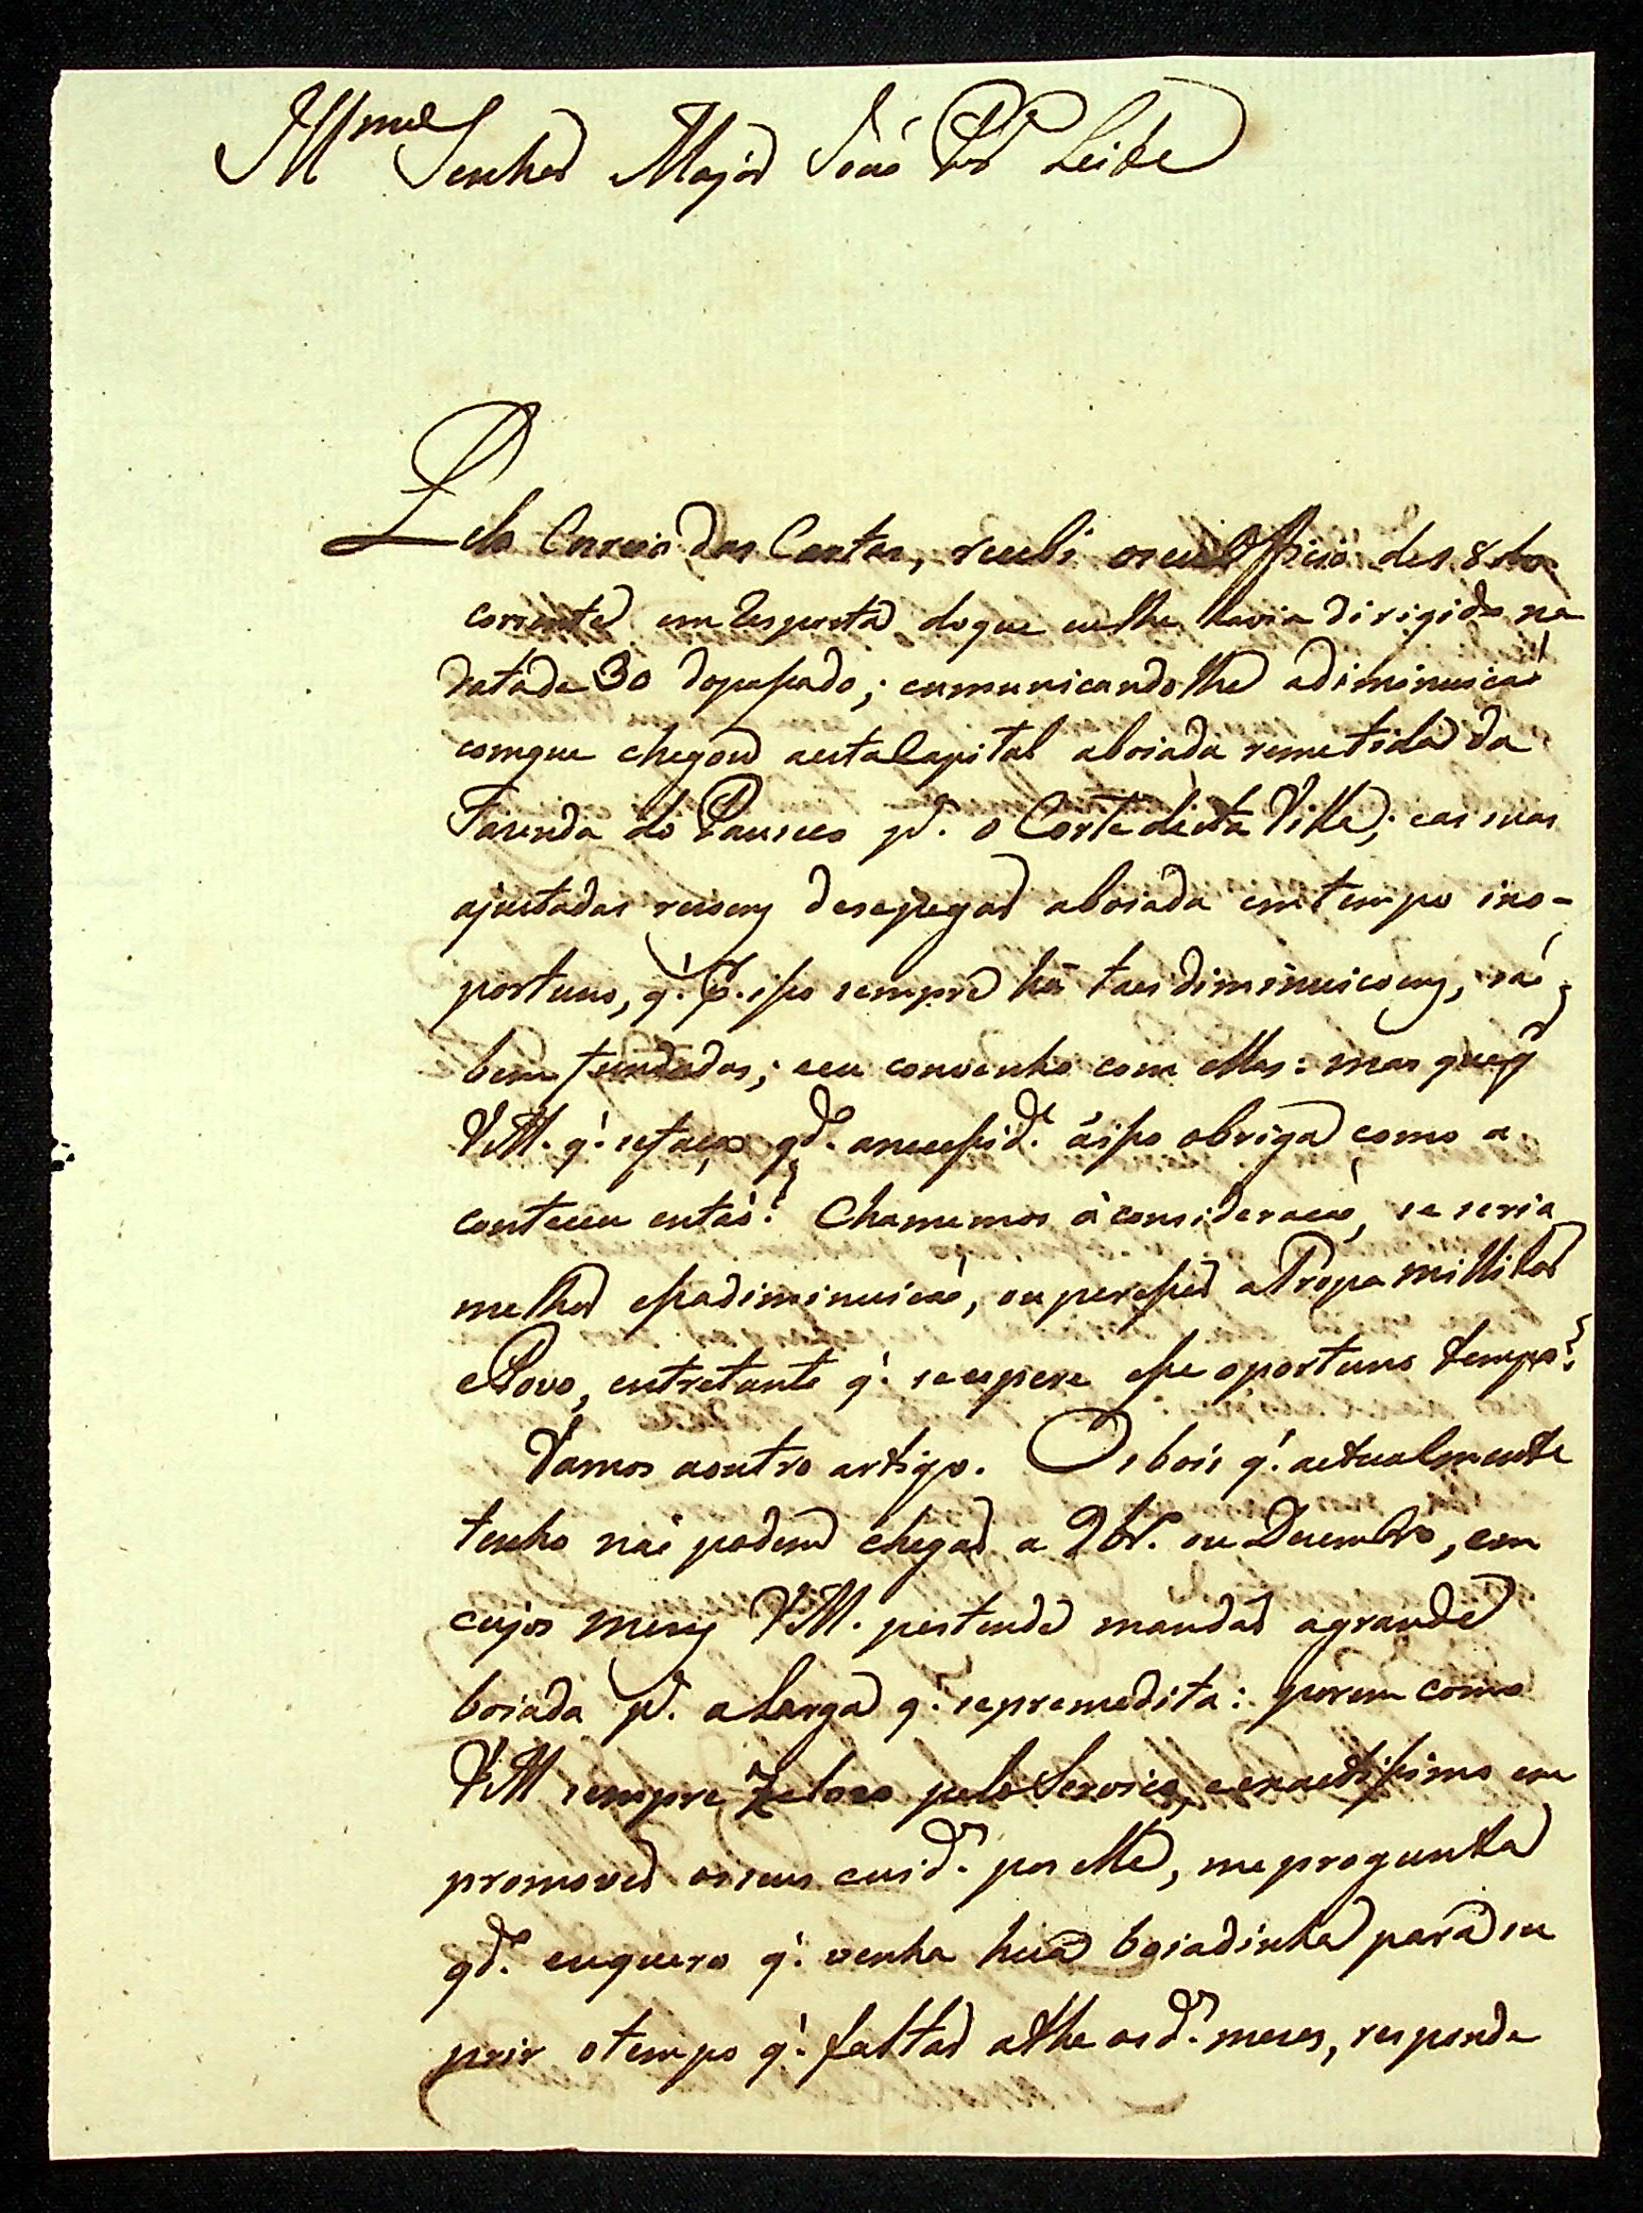 Illmo Senhor Major João Leite
Pelo Correio das Cartas, recebi oseu Officio de 18 do
corrente em resposta doque eu lhe havia dirigido na
data de 30 dopassado; cumunicandolhe adiminuicaõ
comque chegou aestaCapital aboiada remetida da
Fazenda do pa. o Corte désta Villa; eas suas
ajustadas rezoens desepegar aboiada emtempo ino-
portuno, q'. P. isso sempre há taes diminuicoens, saõ
bem fundadas; eeu convenho com ellas: mas quer
VM. q'. sefaça qdo. anecesside. áisso obriga como a
conteceu entaõ? Chamemos áconsideracaõ, se seria
melhor essadiminuicaõ, ouperesser aTropa millitar
ePovo, entretanto q'. seespere esse oportuno tempo?
Vamos aoutro artigo. Os bois q'. actualmente
tenho naõ podem chegar a 9br. ou Dezembro, em
cujos mezes VM. pertende mandar agrande
boiada pa. aLarga q'. sepremedita: porem como
VM sempre Zelozo pelo Servico, eexactissimo em
promover osseus cuide. por elle, mepregunta
qdo. euquero q'. venha hua boiadinha para su
prir otempo q'. faltar athe osdos. mezes, responde